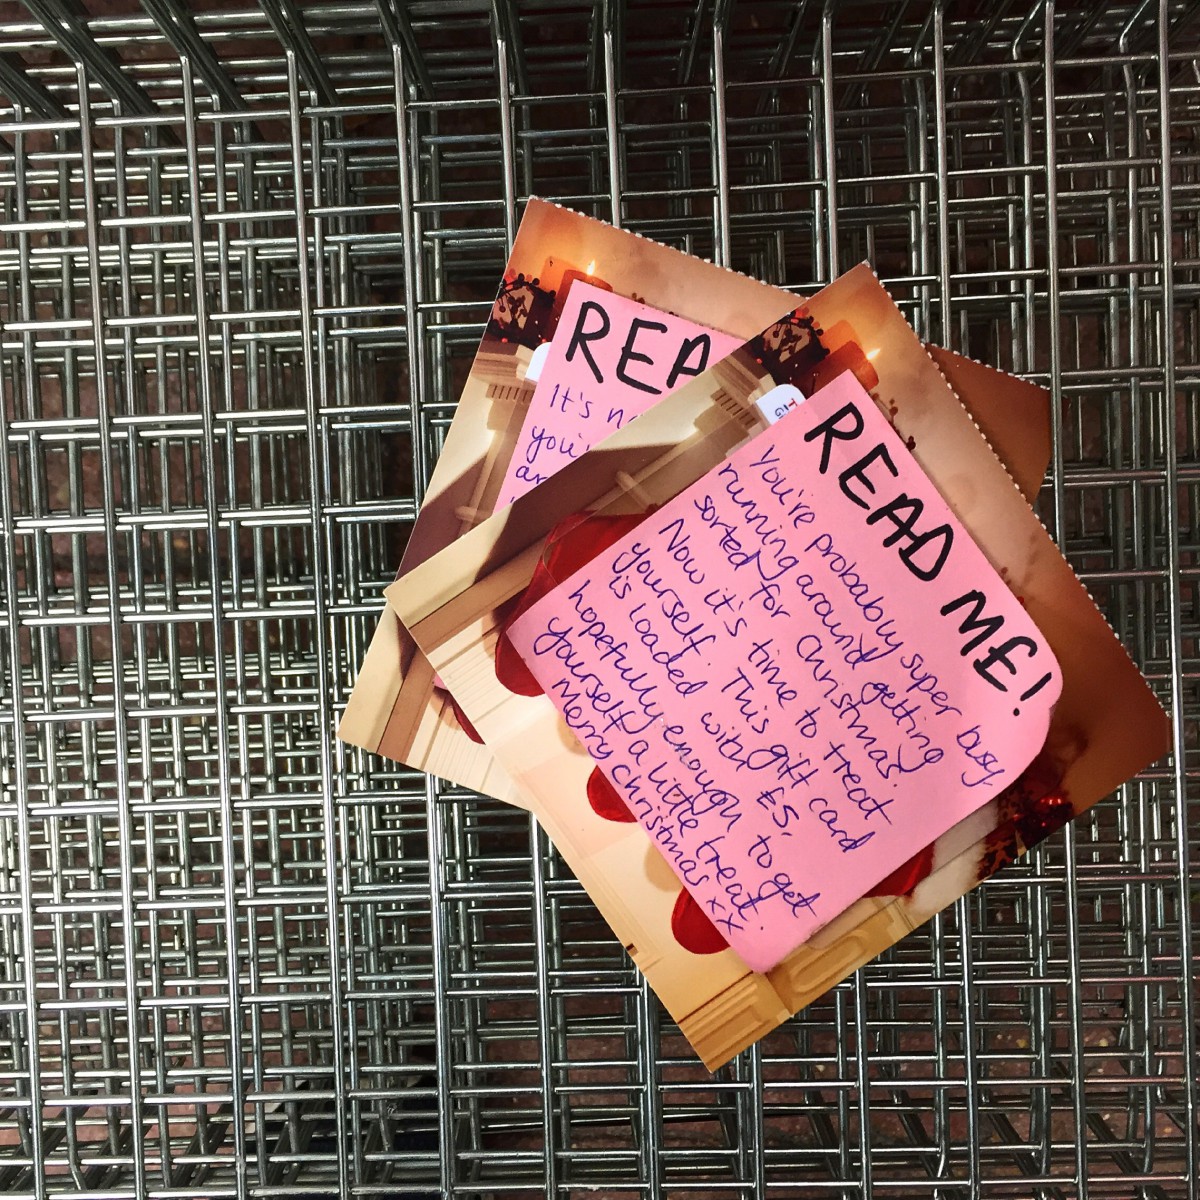 REA
It's n
you'
ar
READ ME!
You're probably super busy
running around getting
sorted for Christmas.
Now it's time to treat
yourself. This gift card
is loaded with £5,
hopefully enough to get
yourself a little treat.
Merry Christmas xx